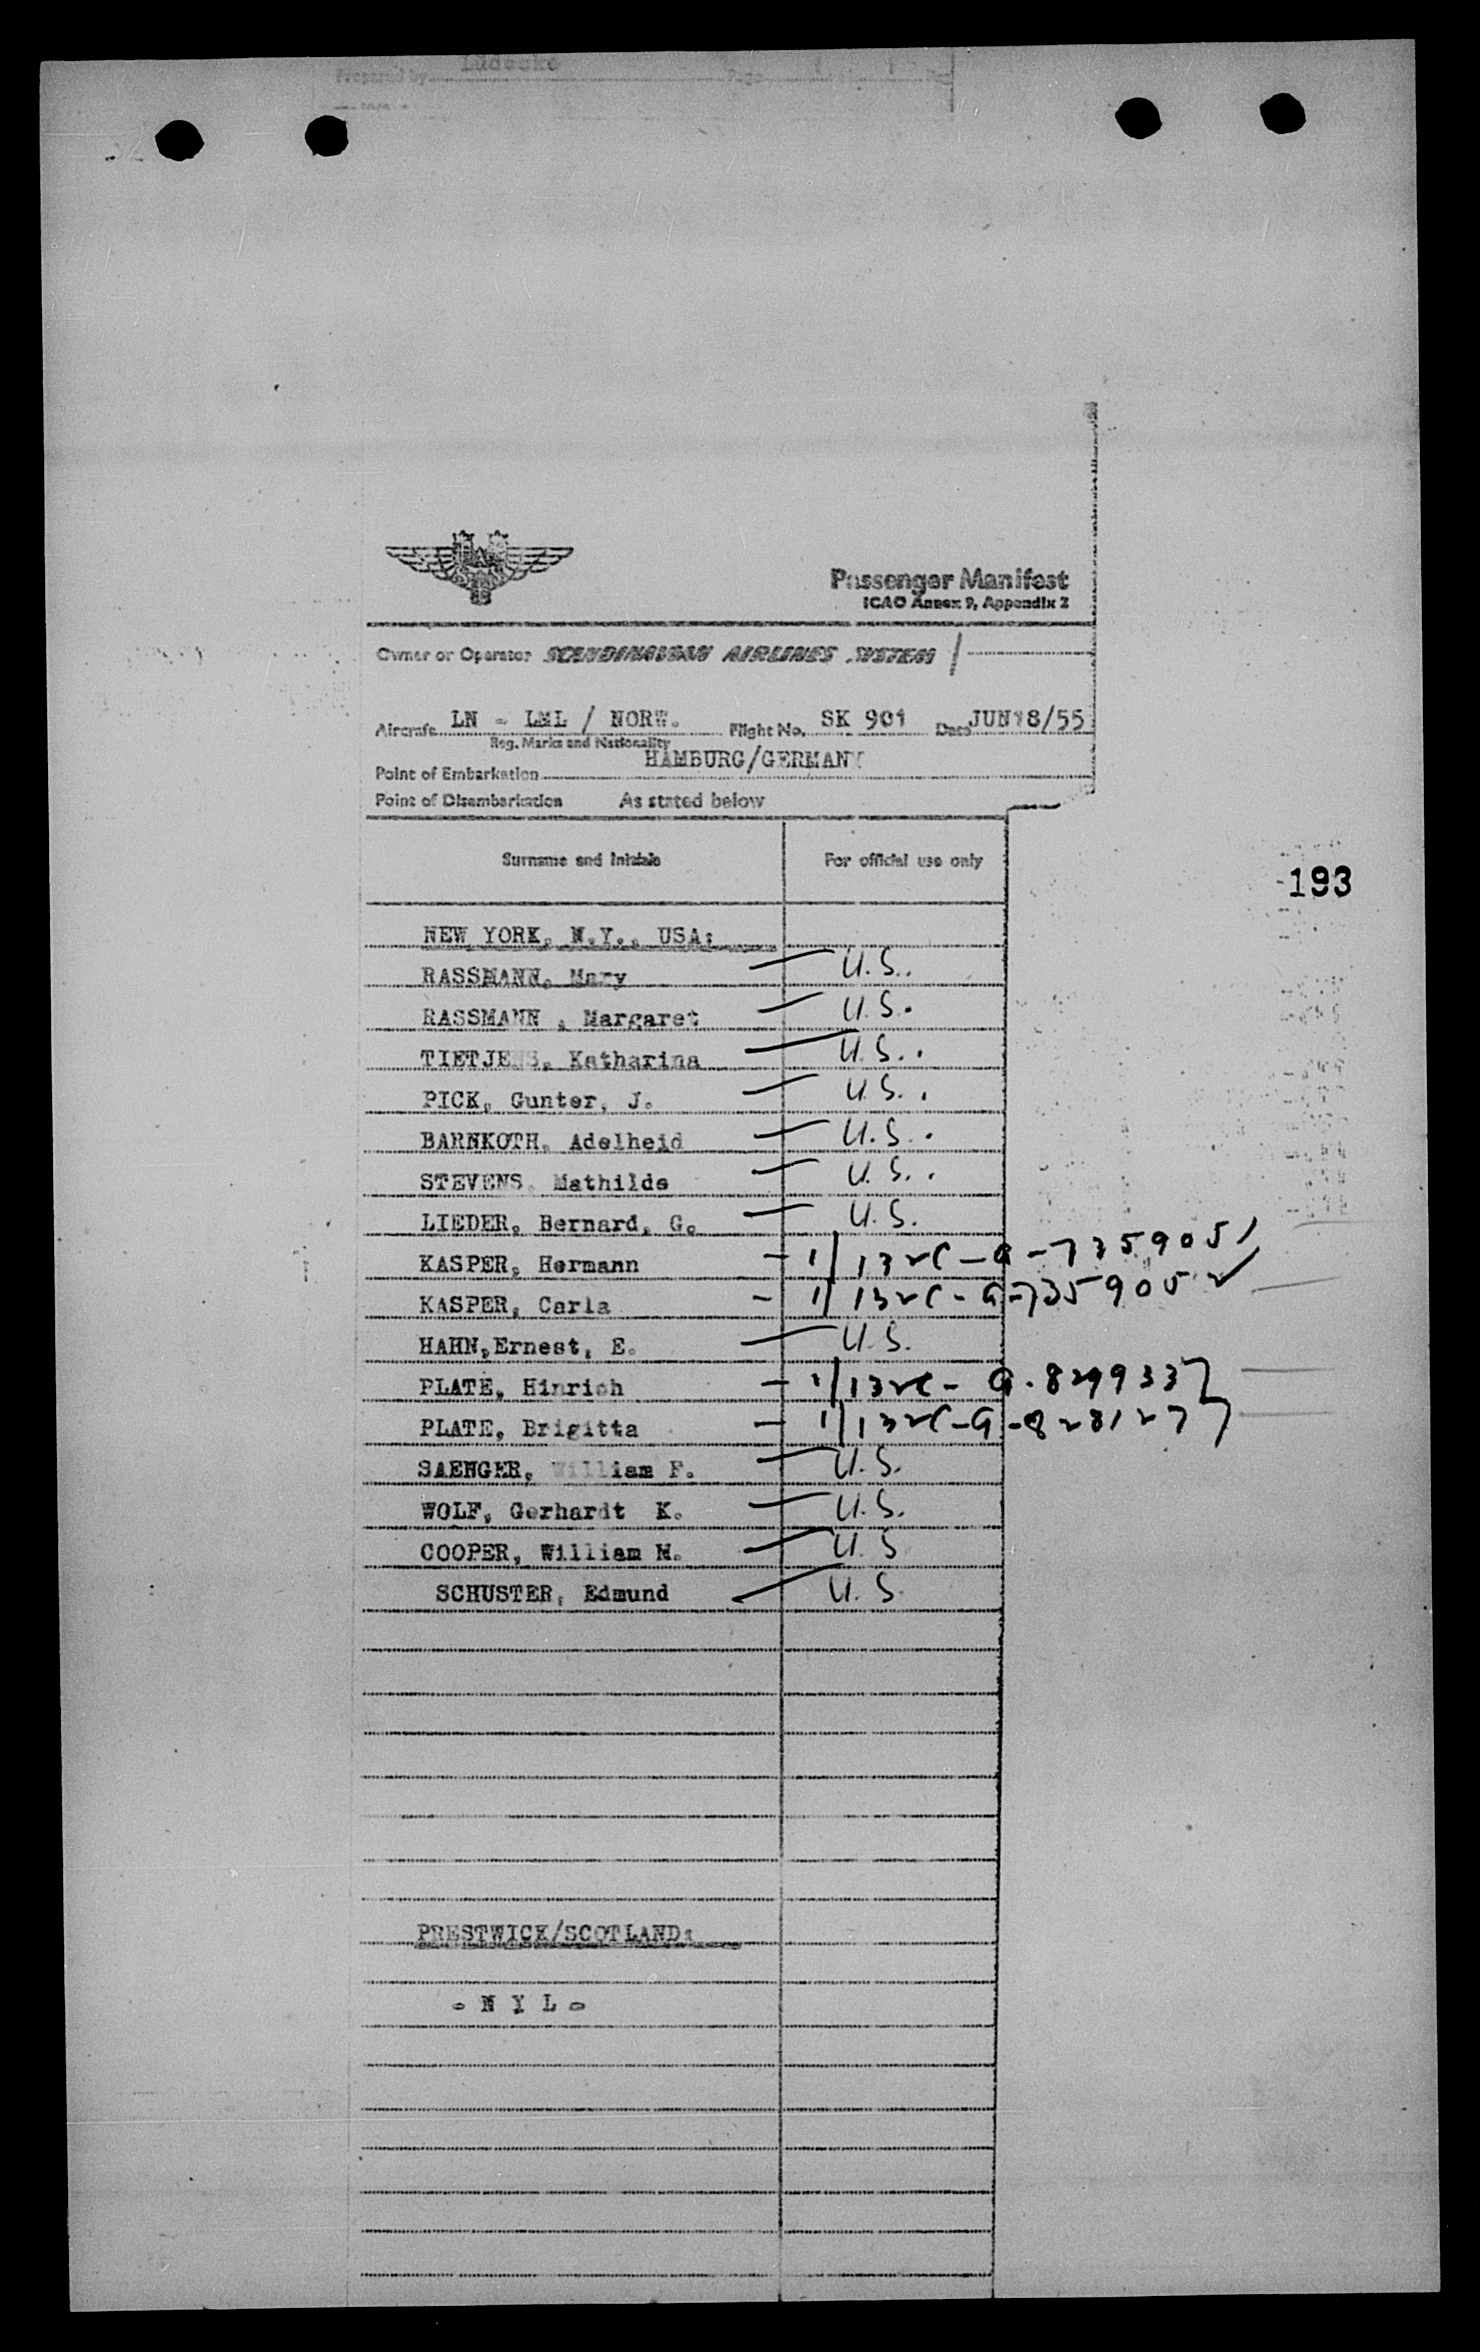 Prepared by Ludecke Page 1
Passenger Manifest
ICAO Annex 9, Appendix 2
Owner or Operator SCANDINAVIAN AIRLINES SYSTEM
Aircraft LN - LML / NORW. Flight No. SK 901 Date JUN18/55
Reg. Marks and Nationality
Point of Embarkation HAMBURG/GERMANY
Point of Disembarkation As stated below
Surname and Initials For official use only
193
NEW YORK, N.Y., USA:
RASSMANN, Mary U.S.
RASSMANN , Margaret U.S.
TIETJENS, Katharina U.S.
PICK, Gunter, J. U.S.
BARNKOTH, Adelheid U.S.
STEVENS, Mathilde U.S.
LIEDER, Bernard, G. U.S.
KASPER, Hermann - 1/132C-A-7359051
KASPER, Carla - 1/132C-A-7359052
HAHN,Ernest, E. U.S.
PLATE, Hinrich - 1/132C-A-8299337
PLATE, Brigitta - 1/132C-A-8281277
SAENGER, William F. U.S.
WOLF, Gerhardt K. U.S.
COOPER, William M. U.S
SCHUSTER, Edmund U.S.
PRESTWICK/SCOTLAND:
- N Y L -